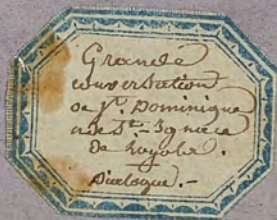 Grande
conversation
de St. Dominique
et de St. Ignace
de Loyola.
Dialogue.-